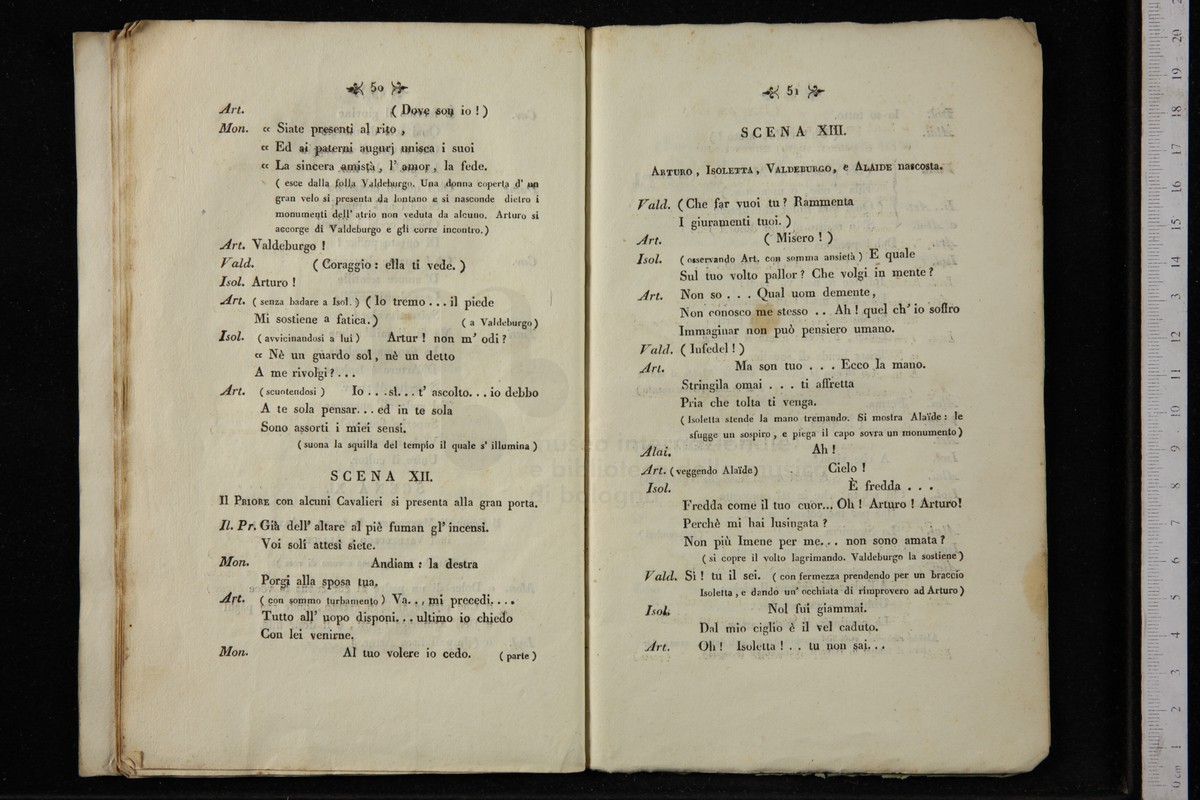 50
Art. ( Dove son io ! )
Mon. « Siate presenti al rito ,
« Ed ai paterni augurj unisca i suoi
« La sincera amistà , l' amor , la fede.
( esce dalla folla Valdeburgo. Una donna coperta d' un
gran velo si presenta da lontano e si nasconde dietro i
monumenti dell' atrio non veduta da alcuno. Arturo si
accorge di Valdeburgo e gli corre incontro. )
Art. Valdeburgo !
Vald. ( Coraggio : ella ti vede. )
Isol. Arturo !
Art. ( senza badare a Isol. ) ( Io tremo . . . il piede
Mi sostiene a fatica. ) ( a Valdeburgo )
Isol. ( avvicinandosi a lui ) Artur ! non m' odi ?
« Nè un guardo sol , nè un detto
A me rivolgi ? . . .
Art. ( scuotendosi ) Io . . . sì. . . t' ascolto. . . io debbo
A te sola pensar. . . ed in te sola
Sono assorti i miei sensi.
( suona la squilla del tempio il quale s' illumina )
SCENA XII.
Il PRIORE con alcuni Cavalieri si presenta alla gran porta.
Il. Pr. Già dell' altare al piè fuman gl' incensi.
Voi soli attesi siete.
Mon. Andiam : la destra
Porgi alla sposa tua.
Art. ( con sommo turbamento ) Va. . , mi precedi. . . .
Tutto all' uopo disponi. . . ultimo io chiedo
Con lei venirne.
Mon. Al tuo volere io cedo. ( parte )
51
SCENA XIII.
ARTURO , ISOLETTA , VALDEBURGO , e ALAIDE nascosta.
Vald. ( Che far vuoi tu ? Rammenta
I giuramenti tuoi. )
Art. ( Misero ! )
Isol. ( osservando Art. con somma ansietà ) E quale
Sul tuo volto pallor ? Che volgi in mente ?
Art. Non so . . . Qual uom demente ,
Non conosco me stesso . . Ah ! quel ch' io soffro
Immaginar non può pensiero umano.
Vald. ( Infedel ! )
Art. Ma son tuo . . . Ecco la mano.
Stringila omai . . . ti affretta
Pria che tolta ti venga.
( Isoletta stende la mano tremando. Si mostra Alaïde : le
sfugge un sospiro , e piega il capo sovra un monumento )
Alai. Ah !
Art. ( veggendo Alaïde ) Cielo !
Isol. È fredda . . .
Fredda come il tuo cuor... Oh ! Arturo ! Arturo!
Perchè mi hai lusingata ?
Non più Imene per me. . . non sono amata ?
( si copre il volto lagrimando. Valdeburgo la sostiene )
Vald. Si ! tu il sei. ( con fermezza prendendo per un braccio
Isoletta , e dando un' occhiata di rimprovero ad Arturo )
Isol. Nol fui giammai.
Dal mio ciglio è il vel caduto.
Art. Oh ! Isoletta ! . . tu non sai. . .
museo internazionale
e biblioteca della musica
di bologna